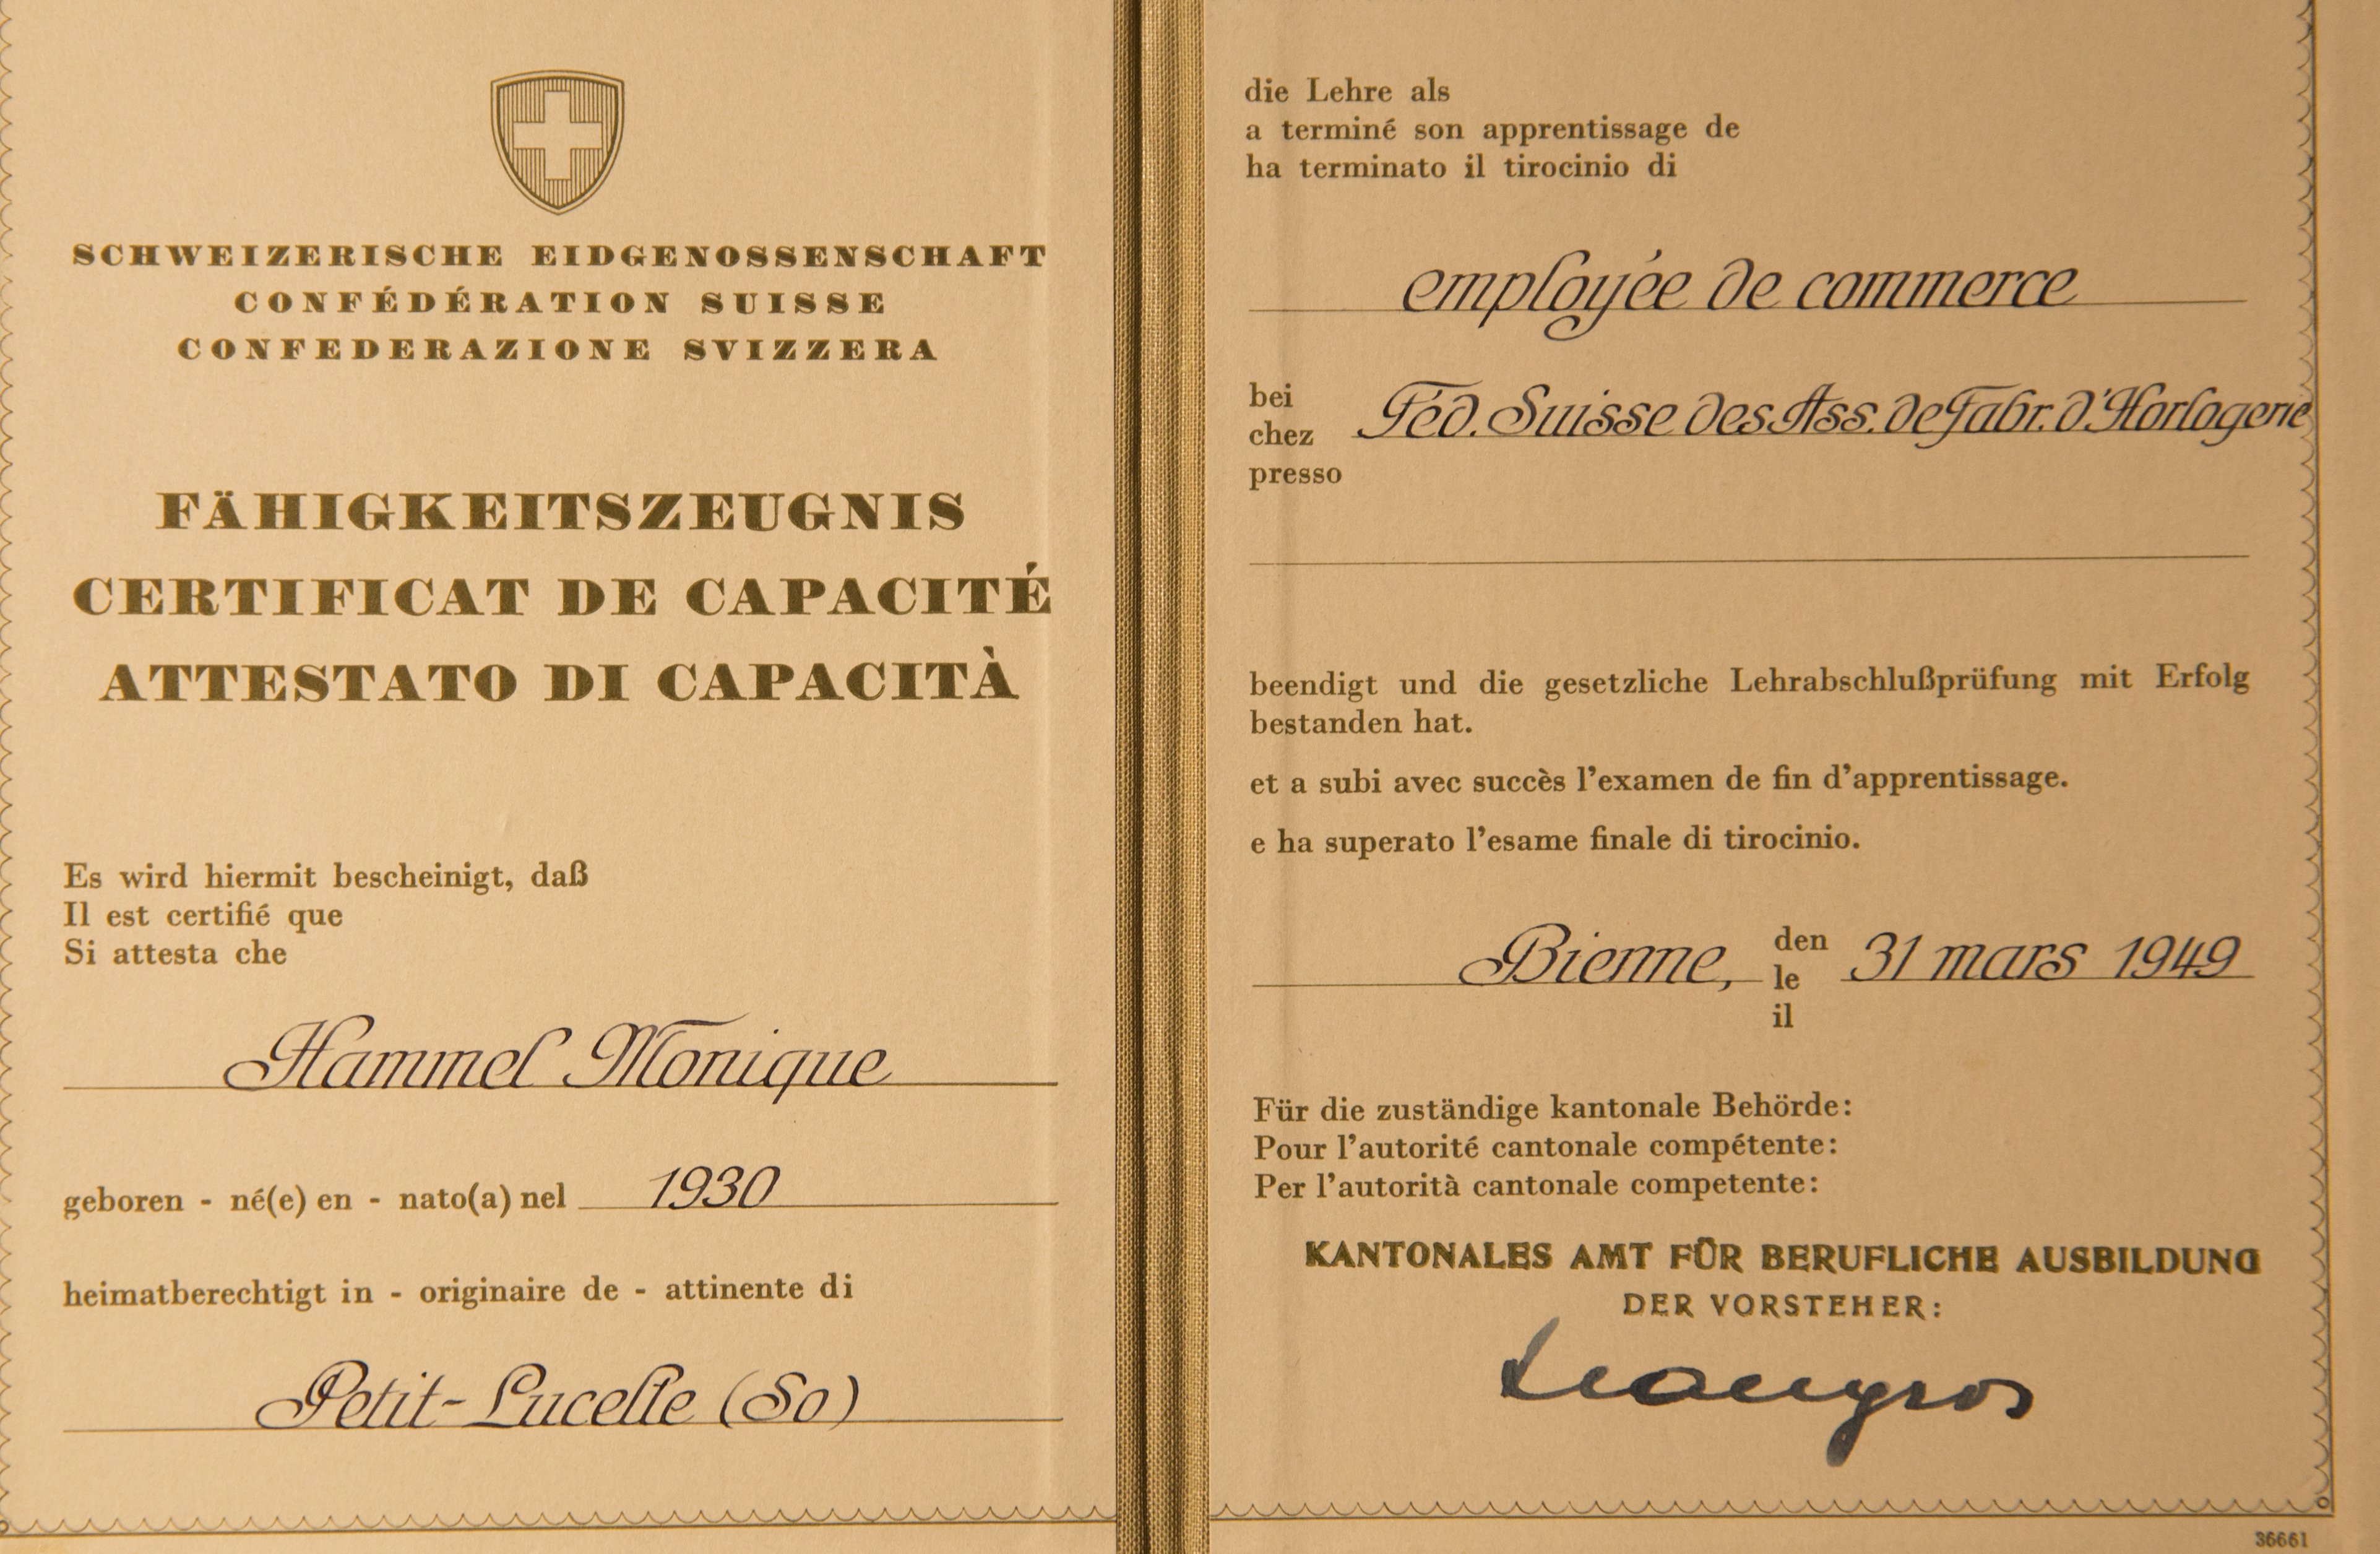 SCHWEIZERISCHE EIDGENOSSENSCHAFT
CONFÉDÉRATION SUISSE
CONFEDERAZIONE SVIZZERA
FÄHIGKEITSZEUGNIS
CERTIFICAT DE CAPACITÉ
ATTESTATO DI CAPACITÀ
Es wird hiermit bescheinigt, daß
Il est certifié que
Si attesta che
Hammel Monique
geboren - né(e) en - nato(a) nel 1930
heimatberechtigt in - originaire de - attinente di
Petit-Lucelle (So)
die Lehre als
a terminé son apprentissage de
ha terminato il tirocinio di
employée de commerce
bei
chez Féd. Suisse des Ass. de Fabr. d'Horlogerie
presso
beendigt und die gesetzliche Lehrabschlußprüfung mit Erfolg
bestanden hat.
et a subi avec succès l'examen de fin d'apprentissage.
e ha superato l'esame finale di tirocinio.
den
Bienne, le 31 mars 1949
il
Für die zuständige kantonale Behörde:
Pour l'autorité cantonale compétente:
Per l'autorità cantonale competente:
KANTONALES AMT FÜR BERUFLICHE AUSBILDUNG
DER VORSTEHER:
36661